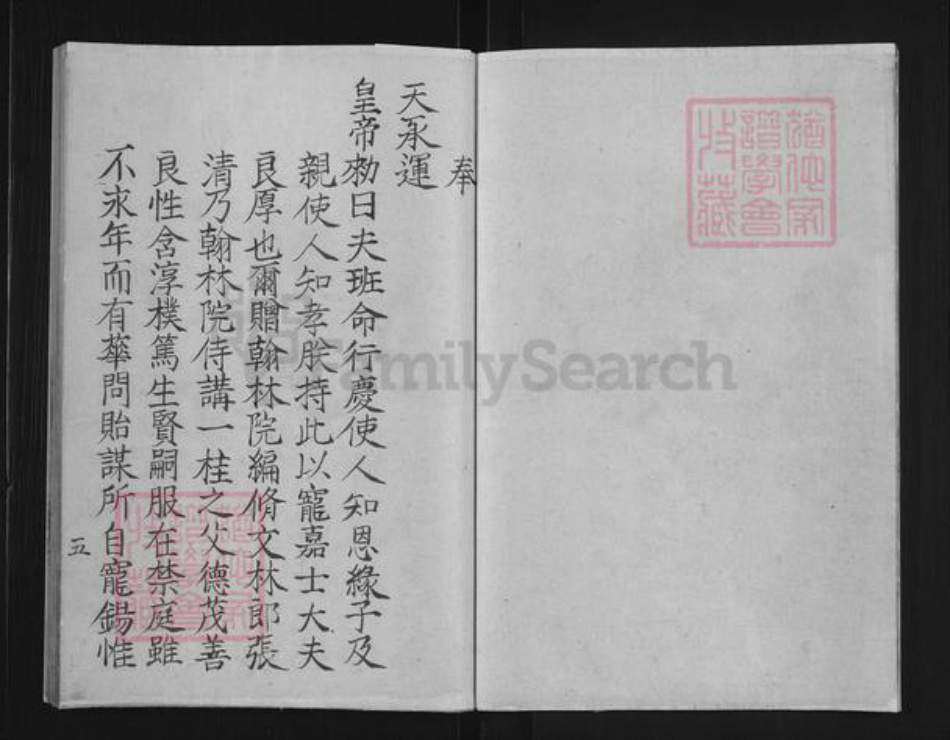 奉
天承運
皇帝勑曰夫班命行慶使人知恩緣子及
親使人知孝朕持此以寵嘉士大夫
良厚也爾贈翰林院編脩文林郎張
清乃翰林院侍講一桂之父德茂善
良性含淳樸篤生賢嗣服在禁庭雖
不求年而有華問貽謀所自寵錫惟
五
FamilySearch
譜學會
收藏